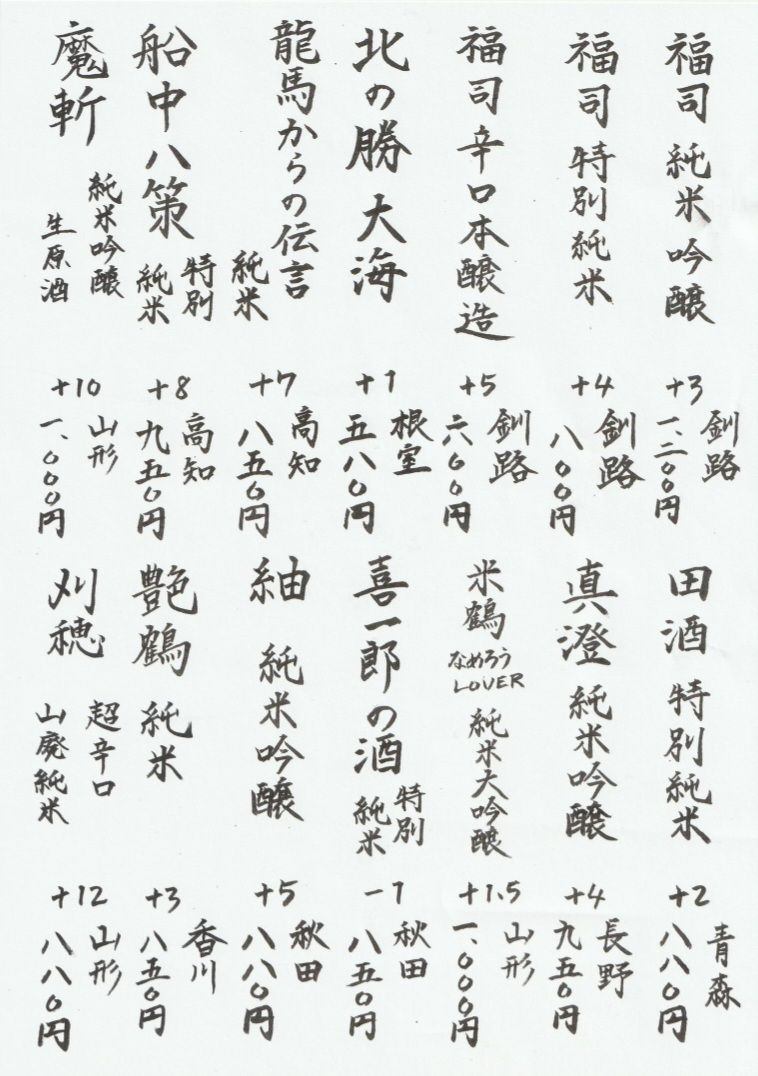 福司 純米吟醸
+3
釧路
一、二〇〇円
福司 特別純米
+4
釧路
八〇〇円
福司辛口本醸造
+5
釧路
六〇〇円
北の勝 大海
+1
根室
五八〇円
龍馬からの伝言
純米
+7
高知
八五〇円
船中八策
特別
純米
+8
高知
九五〇円
魔斬
純米吟醸
生原酒
+10
山形
一、〇〇〇円
田酒 特別純米
+2
青森
八八〇円
真澄 純米吟醸
+4
長野
九五〇円
米鶴
なめろう
LOVER
純米大吟醸
+1.5
山形
一、〇〇〇円
喜一郎の酒
特別
純米
-1
秋田
八五〇円
紬 純米吟醸
+5
秋田
八八〇円
艶鶴 純米
+3
香川
八五〇円
刈穂
超辛口
山廃純米
+12
山形
八八〇円